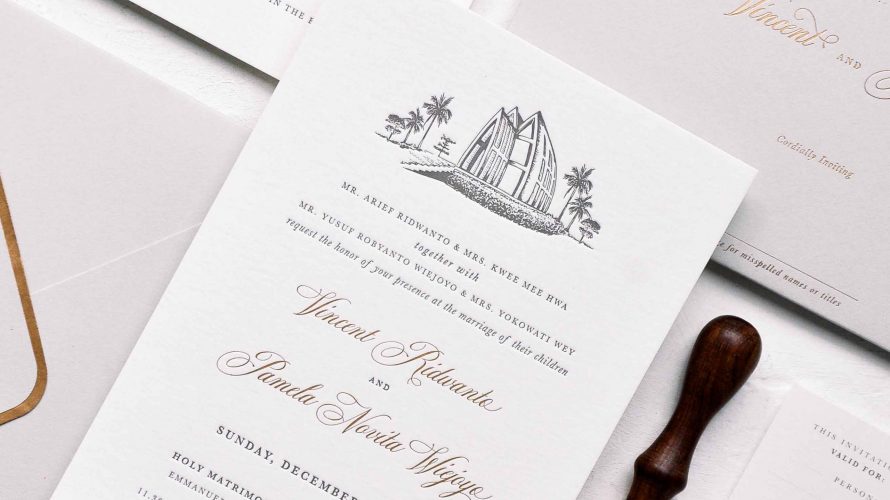 IN THE
MR. ARIEF RIDWANTO & MRS. KWEE MEE HWA
together with
MR. YUSUF ROBYANTO WIEJOYO & MRS. YOKOWATI WEY
request the honor of your presence at the marriage of their children
Vincent Ridwanto
AND
Pamela Novita Wiejoyo
SUNDAY, DECEMBER
HOLY MATRIMO
EMMANUE
11.30
Vincent
AND
Cordially Inviting
for misspelled names or titles
THIS INVITATI
VALID FOR:
PERSON